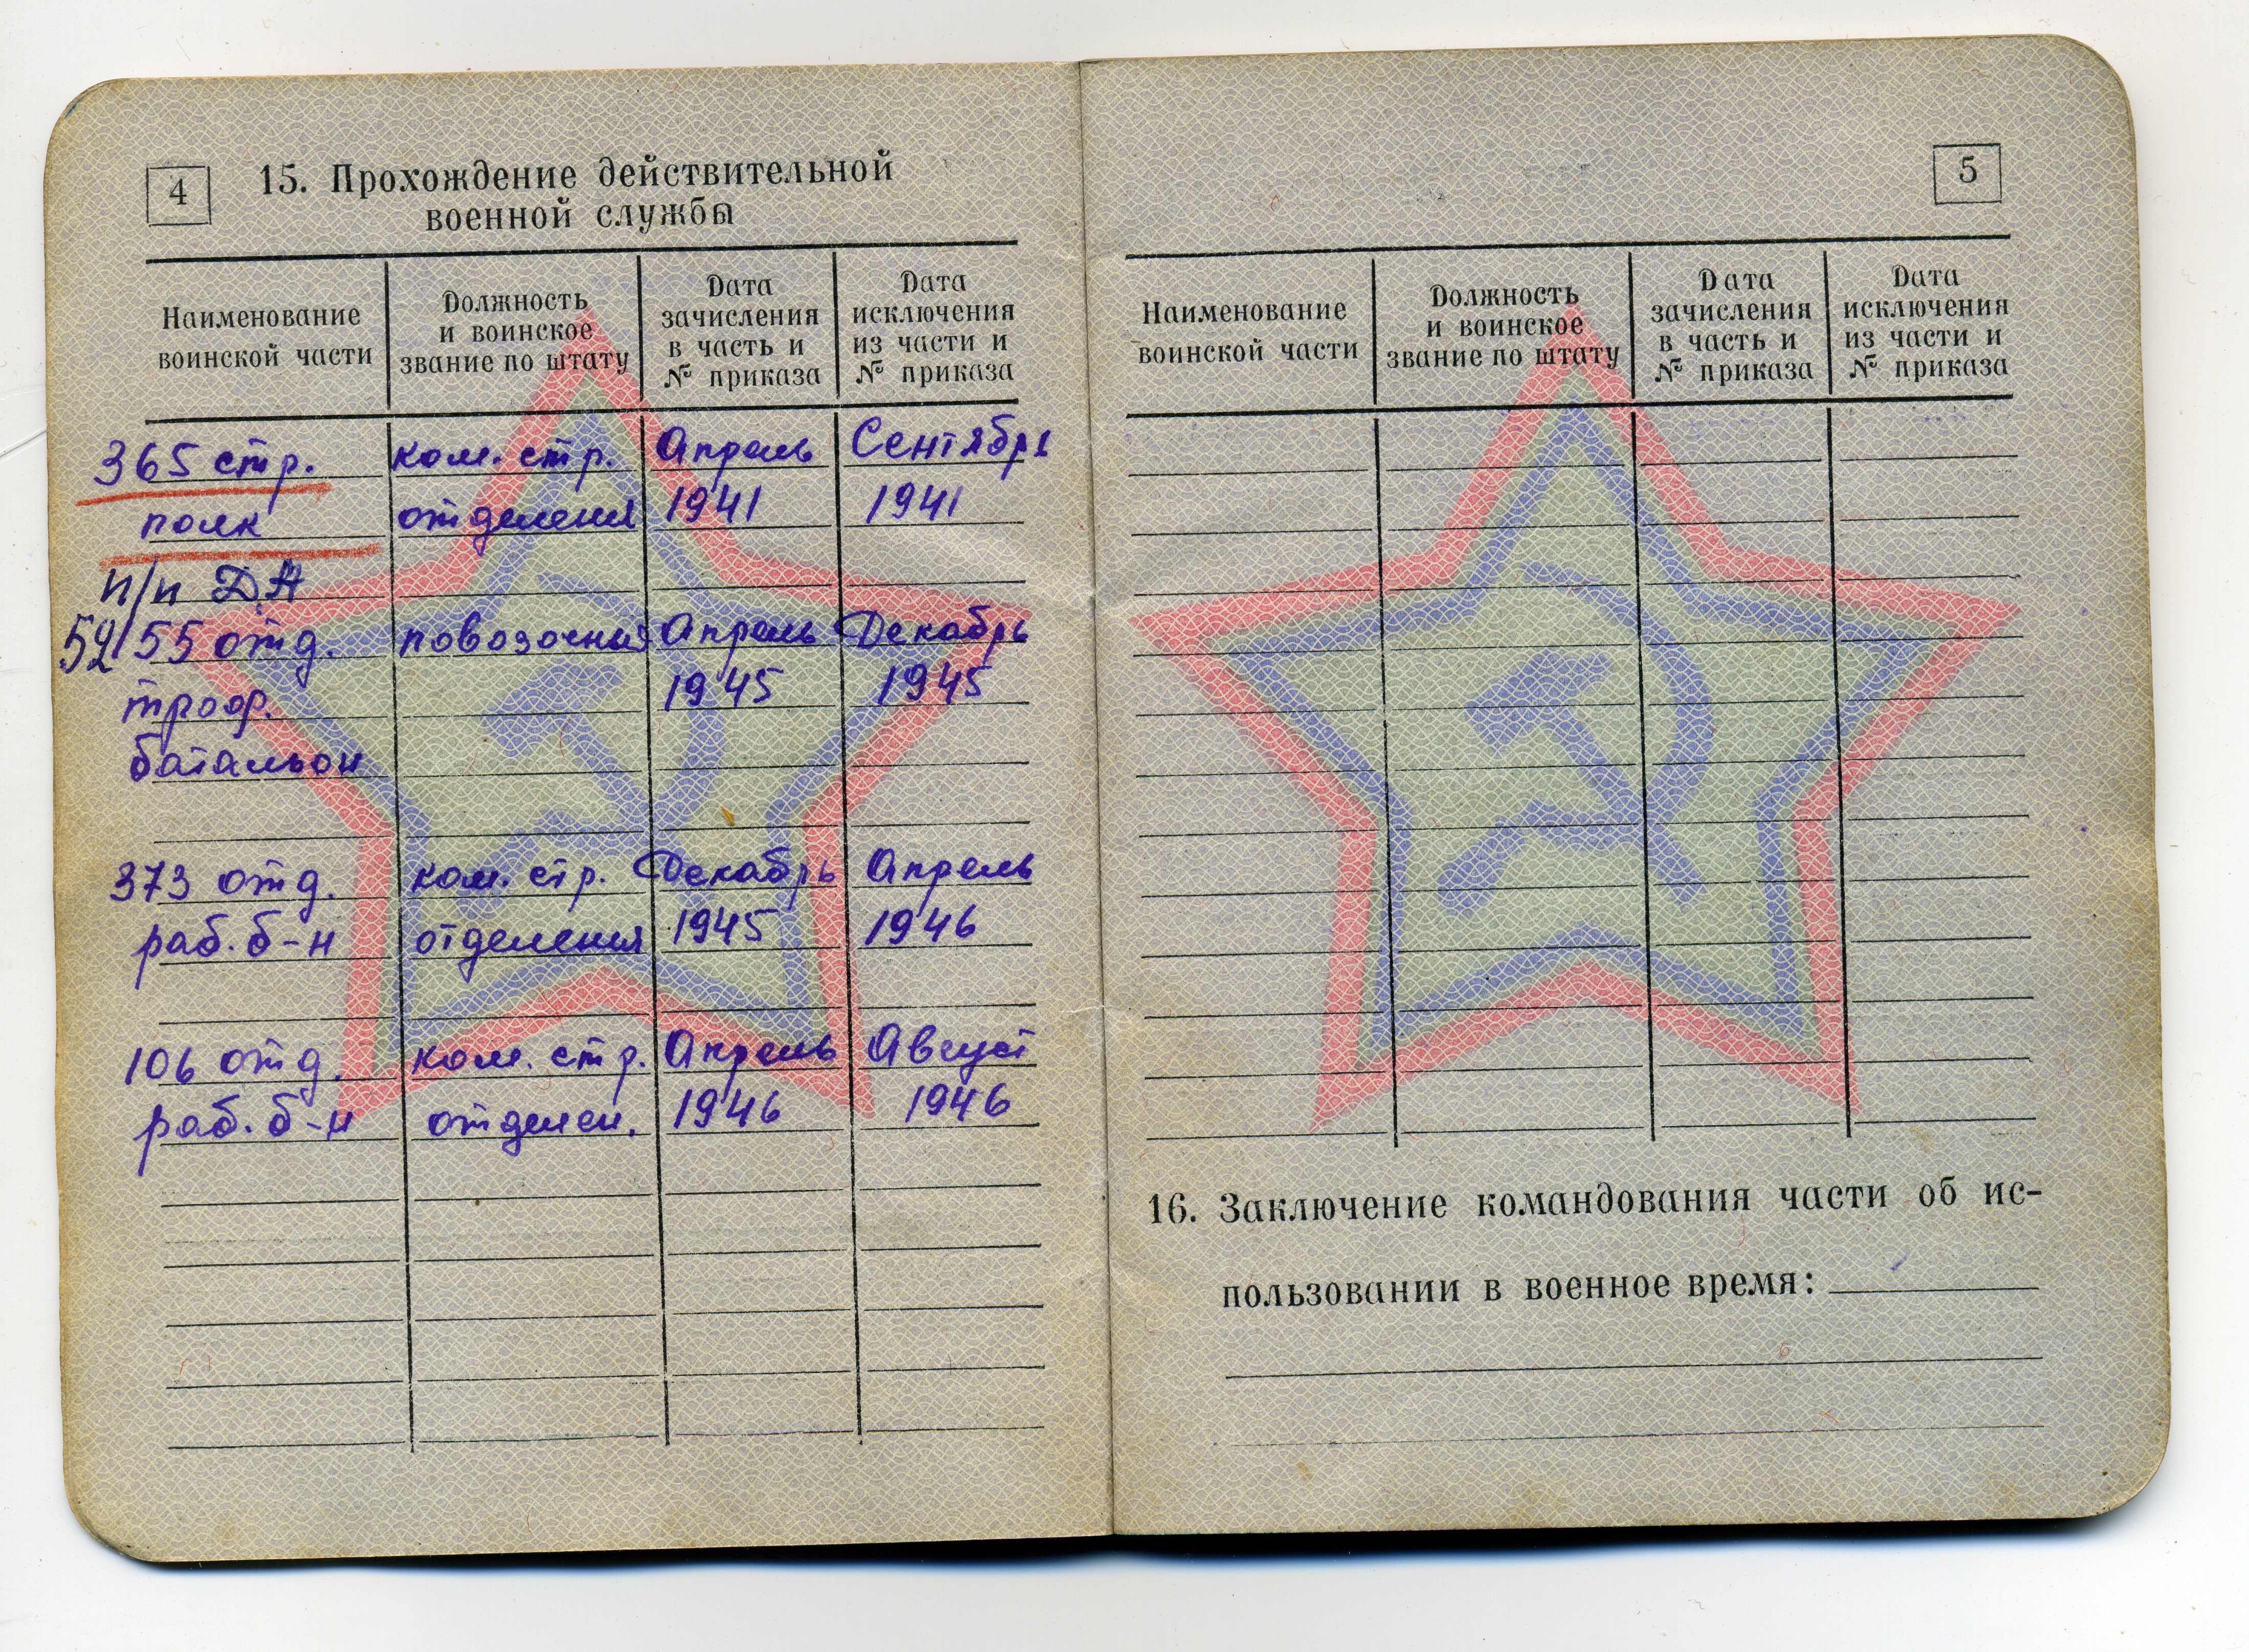 4
15. Прохождение действительной
военной службы
Наименование
воинской части
Должность
и воинское
звание по штату
Дата
зачисления
в часть и
№ приказа
Дата
исключения
из части и
№ приказа
365 стр. ком. стр. Апрель Сентябрь
полк отделения 1941 1941
п/п Д.А
52/55 отд. повозочная Апрель Декабрь
1945 1945
батальон
373 отд. ком. стр. Декабрь Апрель
раб. б-н отделения 1945 1946
106 отд. ком. стр. Апрель Август
раб. б-н отделен. 1946 1946
5
Наименование
воинской части
Должность
и воинское
звание по штату
Дата
зачисления
в часть и
№ приказа
Дата
исключения
из части и
№ приказа
16. Заключение командования части об ис-
пользовании в военное время: